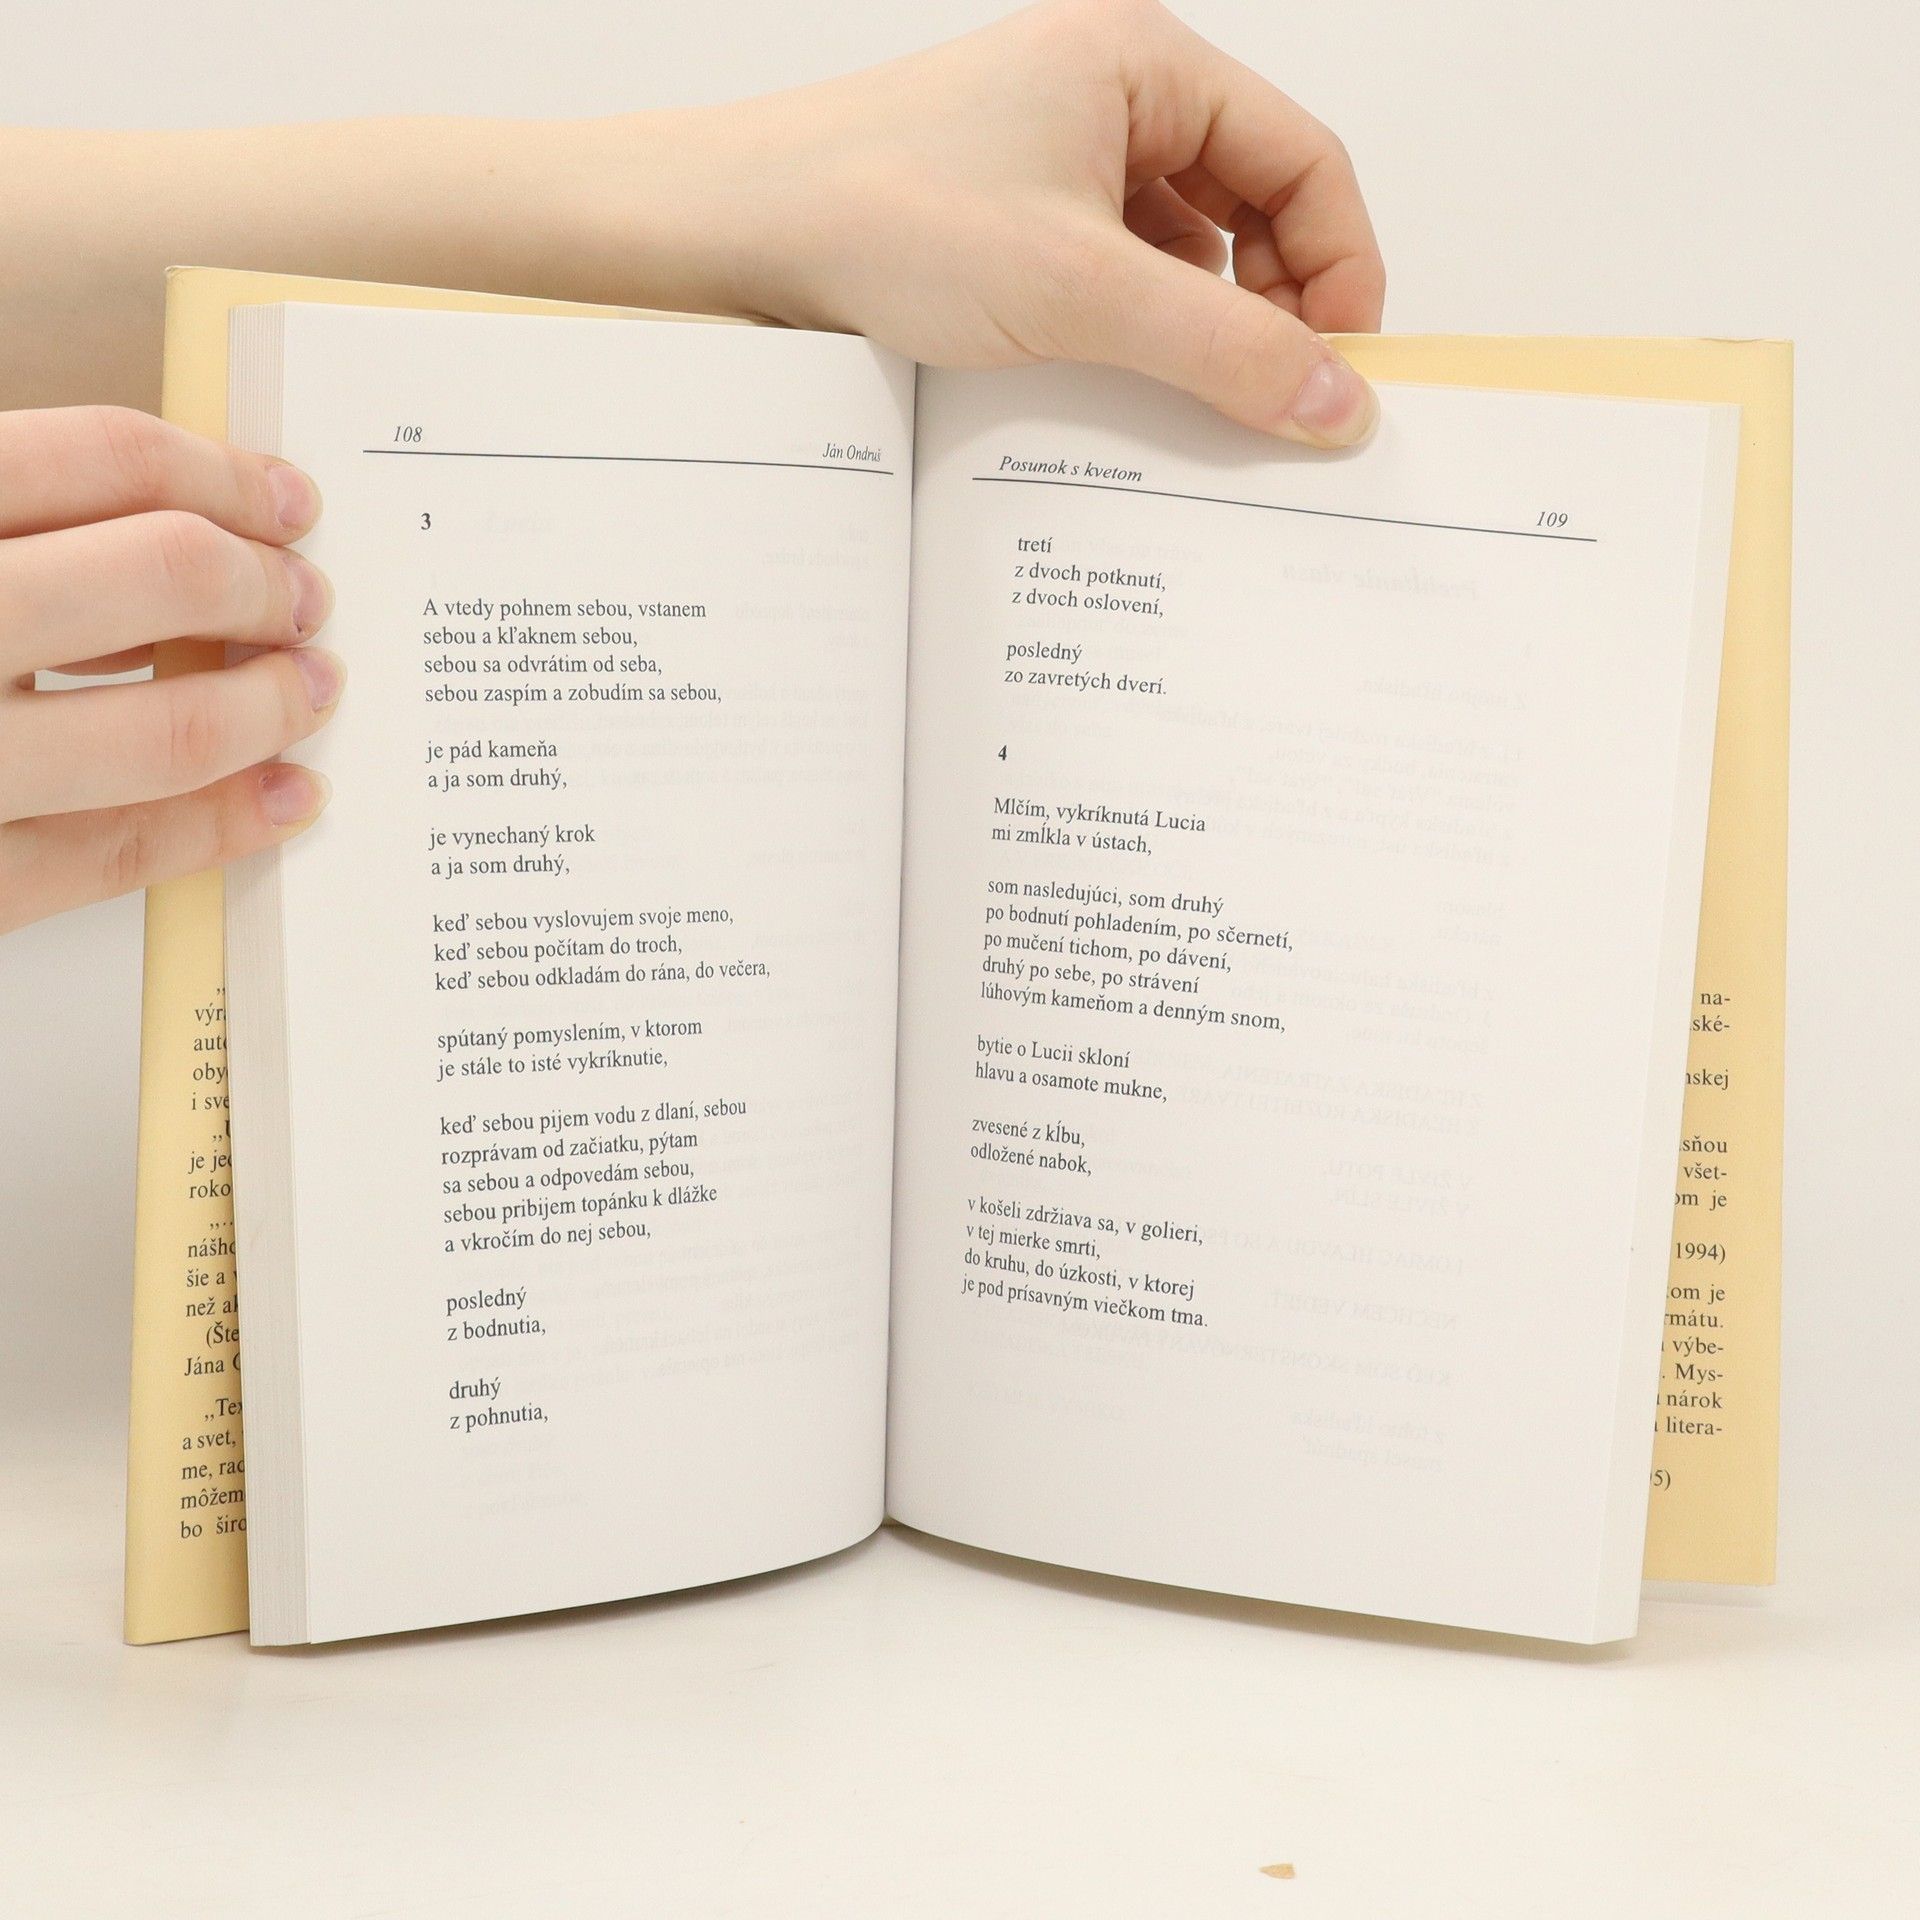 108
Ján Ondruš
3
A vtedy pohnem sebou, vstanem
sebou a kľaknem sebou,
sebou sa odvrátim od seba,
sebou zaspím a zobudím sa sebou,
je pád kameňa
a ja som druhý,
je vynechaný krok
a ja som druhý,
keď sebou vyslovujem svoje meno,
keď sebou počítam do troch,
keď sebou odkladám do rána, do večera,
spútaný pomyslením, v ktorom
je stále to isté vykríknutie,
keď sebou pijem vodu z dlaní, sebou
rozprávam od začiatku, pýtam
sa sebou a odpovedám sebou,
sebou pribijem topánku k dlážke
a vkročím do nej sebou,
posledný
z bodnutia,
druhý
z pohnutia,
Posunok s kvetom
109
tretí
z dvoch potknutí,
z dvoch oslovení,
posledný
zo zavretých dverí.
4
Mlčím, vykríknutá Lucia
mi zmĺkla v ústach,
som nasledujúci, som druhý
po bodnutí pohladením, po sčernetí,
po mučení tichom, po dávení,
druhý po sebe, po strávení
lúhovým kameňom a denným snom,
bytie o Lucii skloní
hlavu a osamote mukne,
zvesené z kĺbu,
odložené nabok,
v košeli zdržiava sa, v golieri,
v tej mierke smrti,
do kruhu, do úzkosti, v ktorej
je pod prísavným viečkom tma.
i
je
(Šte
Jána
šie a
než
a svet,
me,
bo
na-
všet-
je
1994)
je
výbe-
Mys-
nárok
litera-